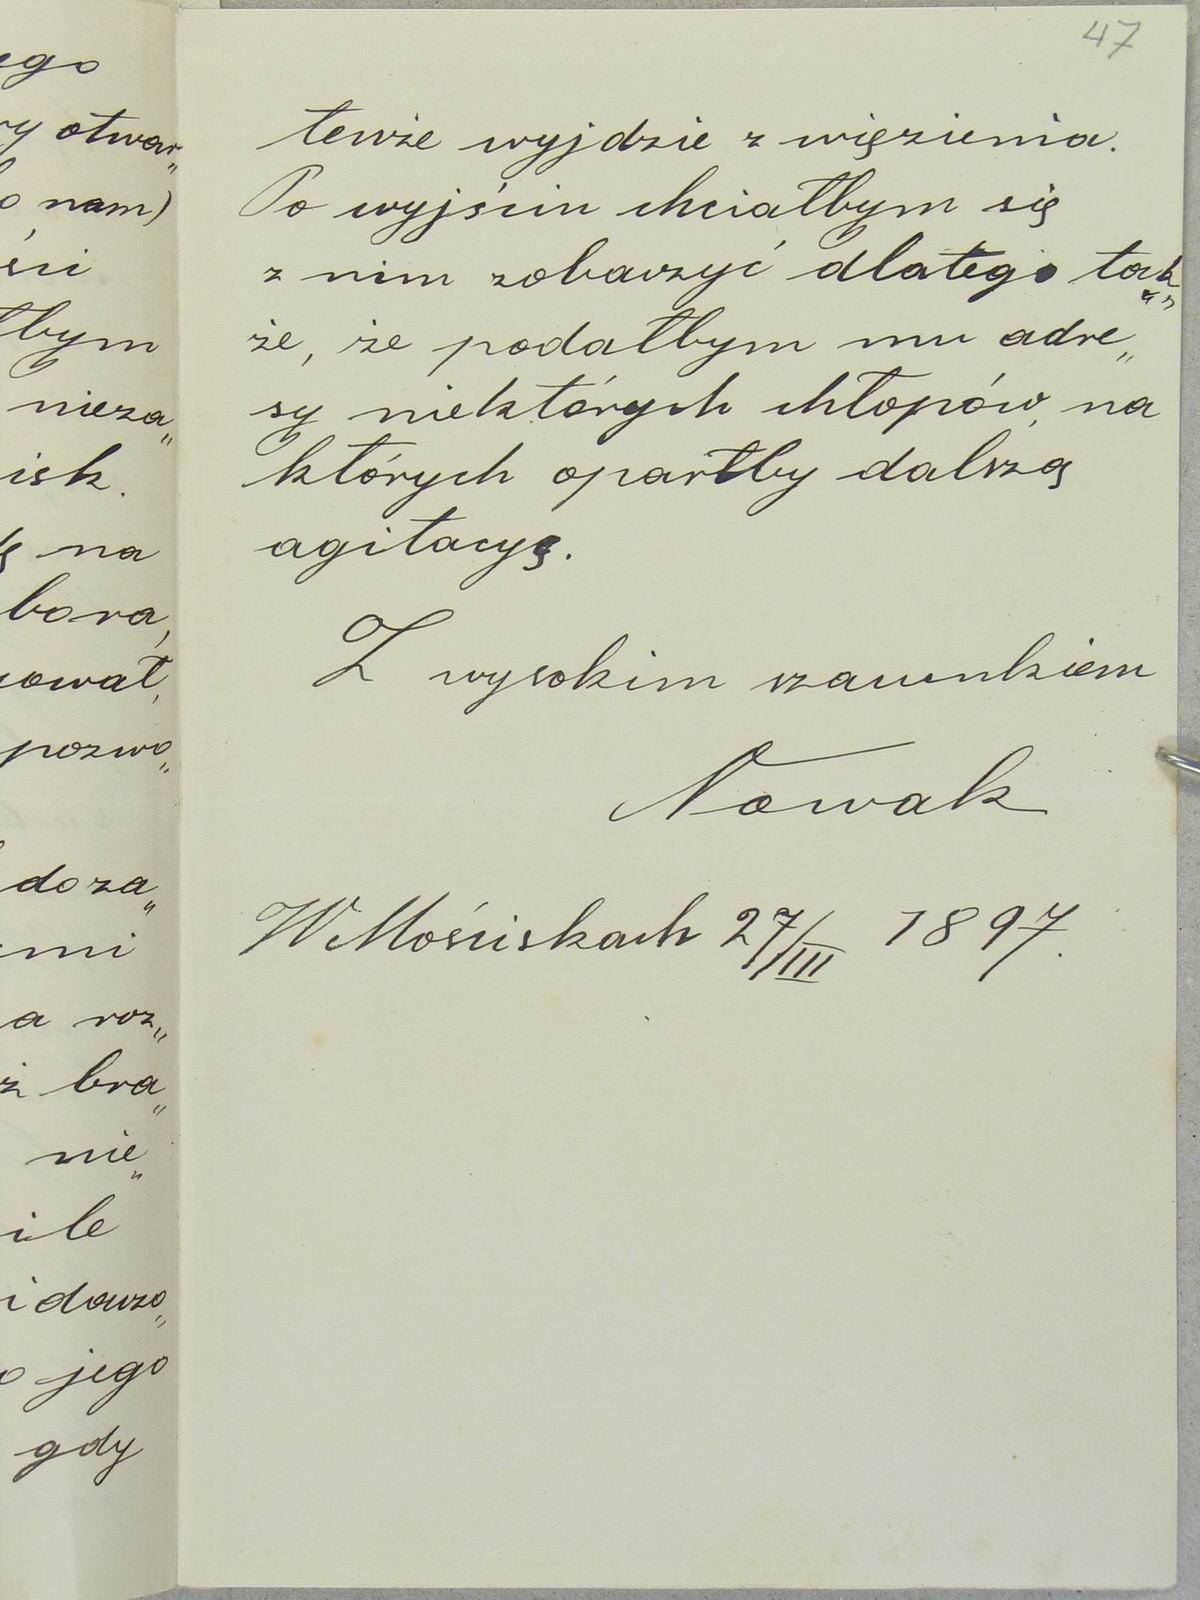 47
tenże wyjdzie z więzienia.
Po wyjściu chciałbym się
z nim zobaczyć dlatego tak„
że, że podałbym mu adre„
sy niektórych chłopów, na
których oparłby dalszą
agitacyę.
Z wysokim szacunkiem
Nowak
W Mościskach 27/III 1897.
otwar„
nam)
nieza„
na
bora,
pozwo„
doza„
a roz„
bra„
nie„
ile
jego
gdy